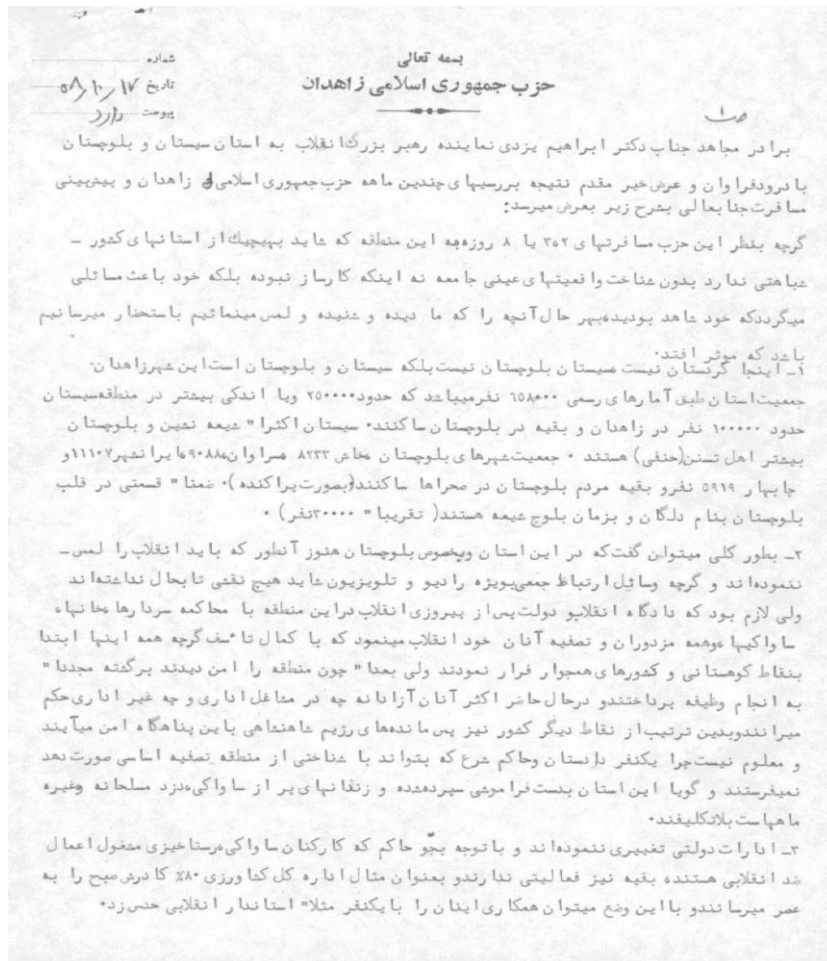 بسمه تعالی
حزب جمهوری اسلامی زاهدان
شماره
تاریخ ۵۸/۱۰/۱۷
پیوست دارد
ص۱
برادر مجاهد جناب دکتر ابراهیم یزدی نماینده رهبر بزرگ انقلاب به استان سیستان و بلوچستان
با درود فراوان و عرض خیر مقدم نتیجه بررسیهای چندین ماهه حزب جمهوری اسلامی زاهدان و پیش‌بینی
مسافرت جنابعالی بشرح زیر بعرض میرسد:
گرچه بنظر این حزب مسافرتهای ۲و۳ یا ۸ روزه به این منطقه که شاید بهیچیک از استانهای کشور -
شباهتی ندارد بدون شناخت واقعیتهای عینی جامعه نه اینکه کارساز نبوده بلکه خود باعث مسائلی
میگردد که خود شاهد بودید بهر حال آنچه را که ما دیده و شنیده و لمس مینمائیم باستحضار میرسانیم
باشد که موثر افتد.
۱- اینجا کردستان نیست سیستان بلوچستان نیست بلکه سیستان و بلوچستان است این شهر زاهدان.
جمعیت استان طبق آمارهای رسمی ۶۵۸۰۰۰ نفر میباشد که حدود ۲۵۰۰۰۰ ویا اندکی بیشتر در منطقه سیستان
حدود ۱۰۰۰۰۰ نفر در زاهدان و بقیه در بلوچستان ساکنند. سیستان اکثرا" شیعه نشین و بلوچستان
بیشتر اهل تسنن(حنفی) هستند . جمعیت شهرهای بلوچستان خاش ۸۲۳۳ سراوان ۹۰۸۸ ایرانشهر ۱۱۱۰۷ و
چابهار ۵۹۱۹ نفر و بقیه مردم بلوچستان در صحراها ساکنند(بصورت پراکنده). ضمنا" قسمتی در قلب
بلوچستان بنام دلگان و بزمان بلوچ شیعه هستند( تقریبا" ۳۰۰۰۰نفر) .
۲- بطور کلی میتوان گفت که در این استان وبخصوص بلوچستان هنوز آنطور که باید انقلاب را لمس -
ننموده‌اند و گرچه وسائل ارتباط جمعی بویژه رادیو و تلویزیون شاید هیچ نقشی تابحال نداشته‌اند
ولی لازم بود که دادگاه انقلاب و دولت پس از پیروزی انقلاب دراین منطقه با محاکمه سردارها، خانها،
ساواکیها و همه مزدوران و تصفیه آنان خود انقلاب مینمود که با کمال تاسف گرچه همه اینها ابتدا
بنقاط کوهستانی و کشورهای همجوار فرار نمودند ولی بعدا" چون منطقه را امن دیدند برگشته مجددا"
به انجام وظیفه پرداختند و درحال حاضر اکثر آنان آزادانه چه در مشاغل اداری و چه غیر اداری حکم
میرانند و بدین ترتیب از نقاط دیگر کشور نیز پس مانده‌های رژیم شاهنشاهی باین پناهگاه امن میآیند
و معلوم نیست چرا یکنفر دادستان وحاکم شرع که بتواند با شناختی از منطقه تصفیه اساسی صورت دهد
نمیفرستند و گویا این استان بدست فراموشی سپرده شده و زندانهای پر از ساواکی، دزد مسلحانه وغیره
ماههاست بلاتکلیفند.
۳- ادارات دولتی تغییری ننموده‌اند و باتوجه بجّو حاکم که کارکنان ساواکی، رستاخیزی مشغول اعمال
ضد انقلابی هستند، بقیه نیز فعالیتی ندارند و بعنوان مثال اداره کل کشاورزی ۸۰٪ کادرش صبح را به
عصر میرسانند و با این وضع میتوان همکاری اینان را با یکنفر مثلا" استاندار انقلابی حدس زد.